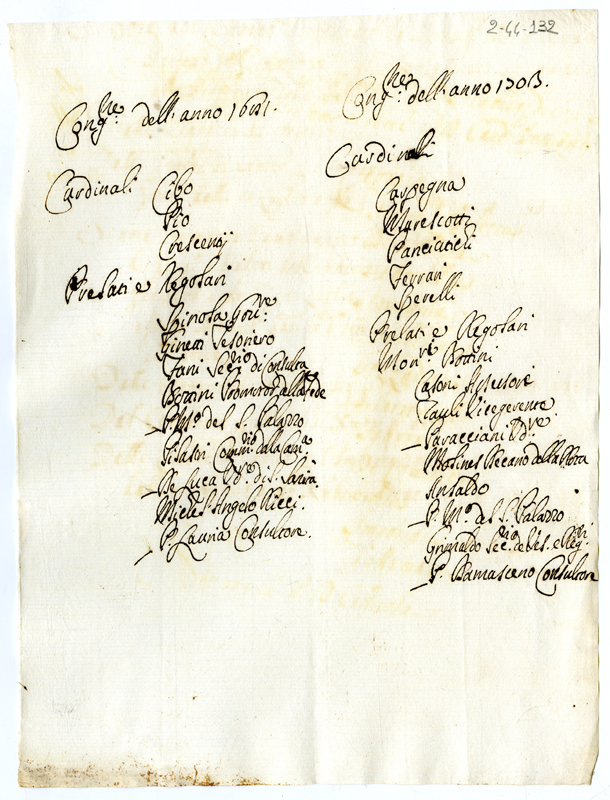 2-44-132
Congne. dell'anno 1681.
Cardinali Cibo
Pio
Crescentij
Prelati e Regolari
Spinola Gore.
Ginetti Tesoriero
Fani Segrio di Consulta
Bottini Promotor della fede
P. Mo. del S. Palazzo
Pilastri Commrio della Cama
De Luca Vdre. di S. Stà
Michel Angelo Ricci.
P. Lauria Consultore.
Congne. dell'anno 1703.
Cardinali
Carpegna
Marescotti
Panciatichi
Ferrari
Sperelli
Prelati e Regolari
Monre. Bottini
Casoni Assessore
Zauli Vicegerente
Paracciani Vdre.
Molines Decano della Rota
Ansaldo
P. Mo. del S. Palazzo
Grimaldo Segrio. de Ves. e Regri.
P. Damasceno Consultore